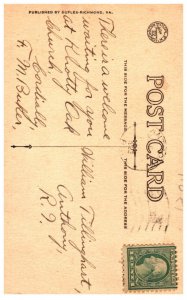 PUBLISHED BY DUPLEX-RICHMOND, VA.
POST CARD
THIS SIDE FOR THE MESSAGE.
THIS SIDE FOR THE ADDRESS
There is a welcome
waiting for you
at Knotty Oak
Church
Cordially,
F. M. Buker,
William Tillinghast,
Anthony,
R. I.